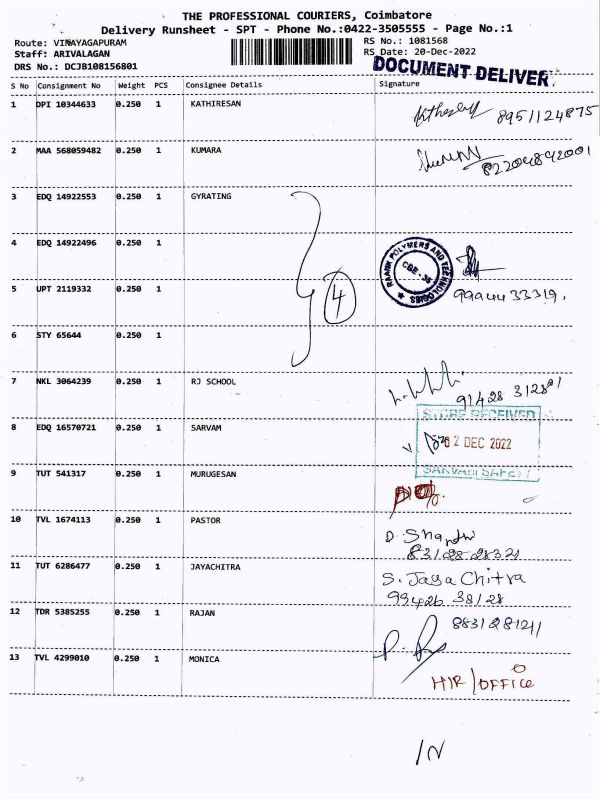 THE PROFESSIONAL COURIERS, Coimbatore
Delivery Runsheet - SPT - Phone No.:0422-3505555 - Page No.:1
Route: VINAYAGAPURAM RS No.: 1081568
Staff: ARIVALAGAN RS Date: 20-Dec-2022
DRS No.: DCJB108156801 DOCUMENT DELIVER
S No Consignment No Weight PCS Consignee Details Signature
1 OPI 10344633 0.250 1 KATHIRESAN 8951124875
2 MAA 568059482 0.250 1 KUMARA 82204892001
3 EDQ 14922553 0.250 1 GYRATING
4 EDQ 14922496 0.250 1
POLYMERS AND TECHNOLOGIES
CBE-35
4
5 UPT 2119332 0.250 1 9994433319.
6 STY 65644 0.250 1
7 NKL 3064239 0.250 1 RJ SCHOOL 91428
STORE RECEIVED
8 EDQ 16570721 0.250 1 SARVAM 2 DEC 2022
9 TUT 541317 0.250 1 MURUGESAN
10 TVL 1674113 0.250 1 PASTOR D. Shanthi
11 TUT 6286477 0.250 1 JAYACHITRA S. Jaya Chitra
99426 38128
12 TDR 5385255 0.250 1 RAJAN
13 TVL 4299010 0.250 1 MONICA
HIR/OFFICE
IN